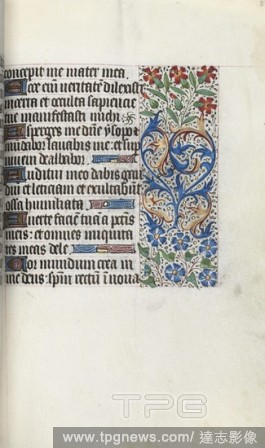 concepit me mater mea.
Ecce eni͂ veritate͂ dilexisti
incerta et occulta sapiencie
tue manifestasti michi.
Asperges me dn͂e ysopo et
mūdabor lauabis me et sup
niuem dealbabor.
Auditui meo dabis gau
diū et leticiam et exultabūt
ossa humiliata.
Auerte facie͂ tuā a pc͂tis
meis: et omnes iniquita
tes meas dele.
Cor mundum crea in
me deus: spm͂ rectū ī noua
TPG
www.tpgnews.com/ 達志影像